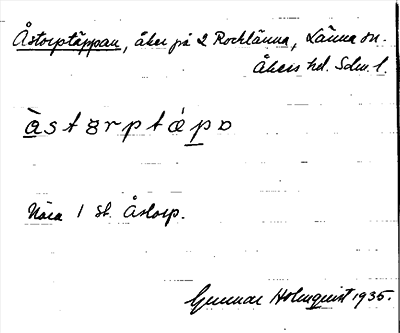 Åstorptäppan, åker på 2 Rocklänna, Länna sn.
Åkers hd. Sdm. l.
àstɜrptápɒ
Nära 1 st. Åstorp.
Gunnar Holmquist 1935.